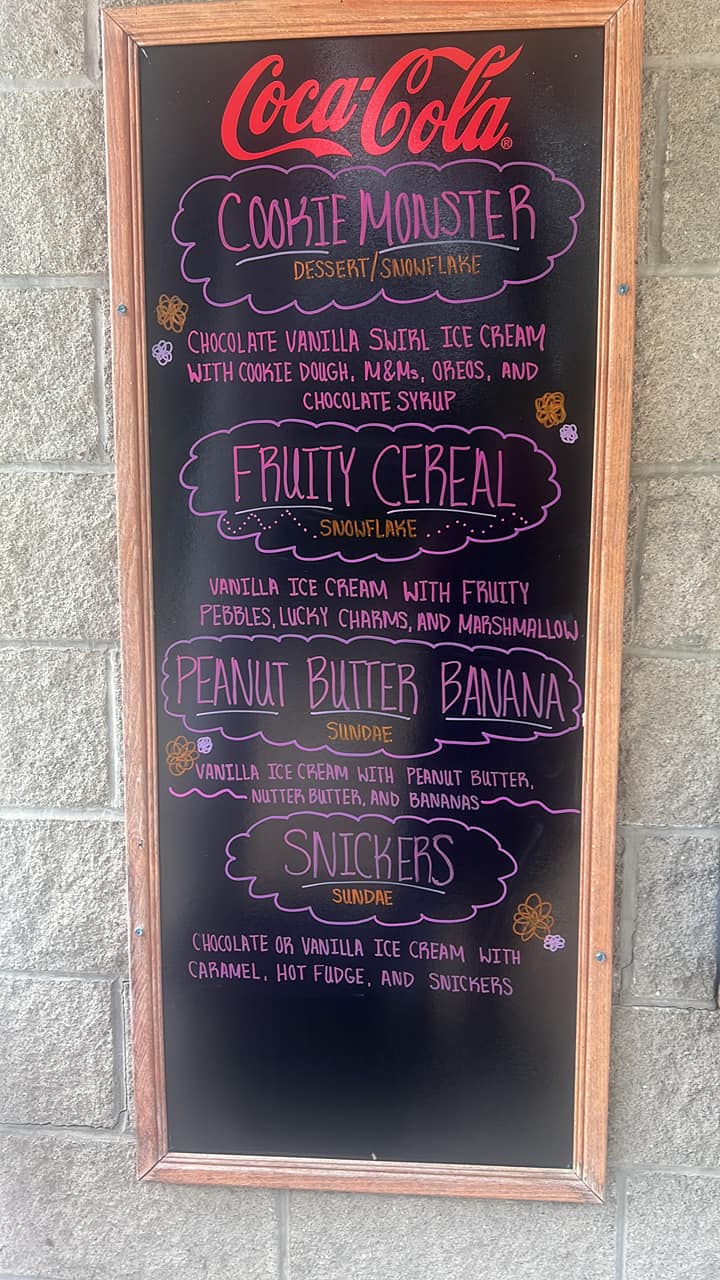 Coca-Cola®
COOKIE MONSTER
DESSERT/SNOWFLAKE
CHOCOLATE VANILLA SWIRL ICE CREAM
WITH COOKIE DOUGH, M&Ms, OREOS, AND
CHOCOLATE SYRUP
FRUITY CEREAL
SNOWFLAKE
VANILLA ICE CREAM WITH FRUITY
PEBBLES, LUCKY CHARMS, AND MARSHMALLOW
PEANUT BUTTER BANANA
SUNDAE
VANILLA ICE CREAM WITH PEANUT BUTTER,
NUTTER BUTTER, AND BANANAS
SNICKERS
SUNDAE
CHOCOLATE OR VANILLA ICE CREAM WITH
CARAMEL, HOT FUDGE, AND SNICKERS